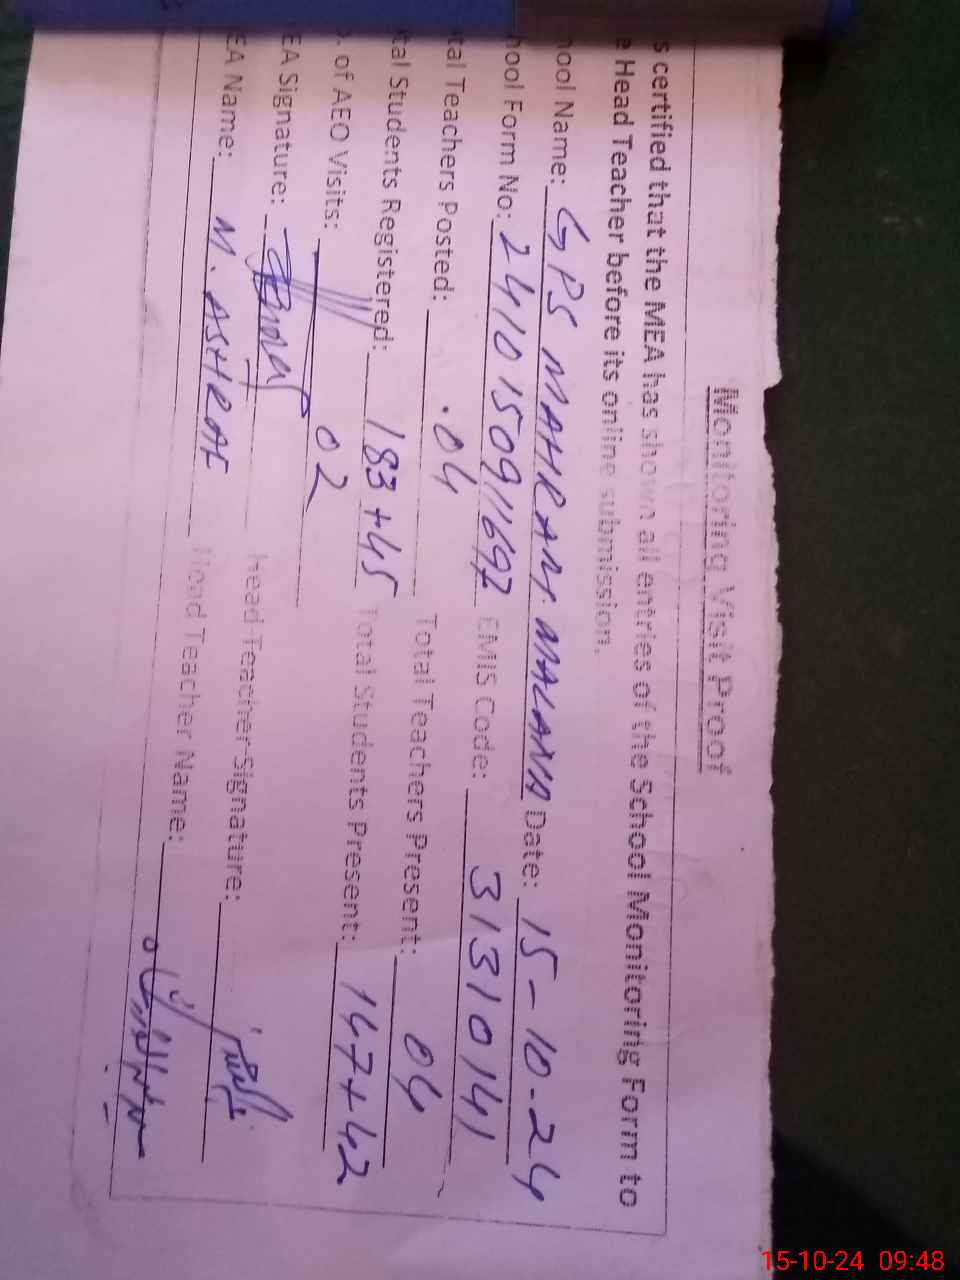 Monitoring Visit Proof
s certified that the MEA has shown all entries of the School Monitoring Form to
e Head Teacher before its online submission.
hool Name: GPS MAHRAM MALANA Date: 15-10-24
hool Form No: 2410150911692 EMIS Code: 31310141
tal Teachers Posted: .04 Total Teachers Present: 04
tal Students Registered: 183+45 Total Students Present: 147+42
. of AEO Visits: 02
EA Signature: Head Teacher Signature:
EA Name: M. ASHRAF Head Teacher Name:
15-10-24 09:48